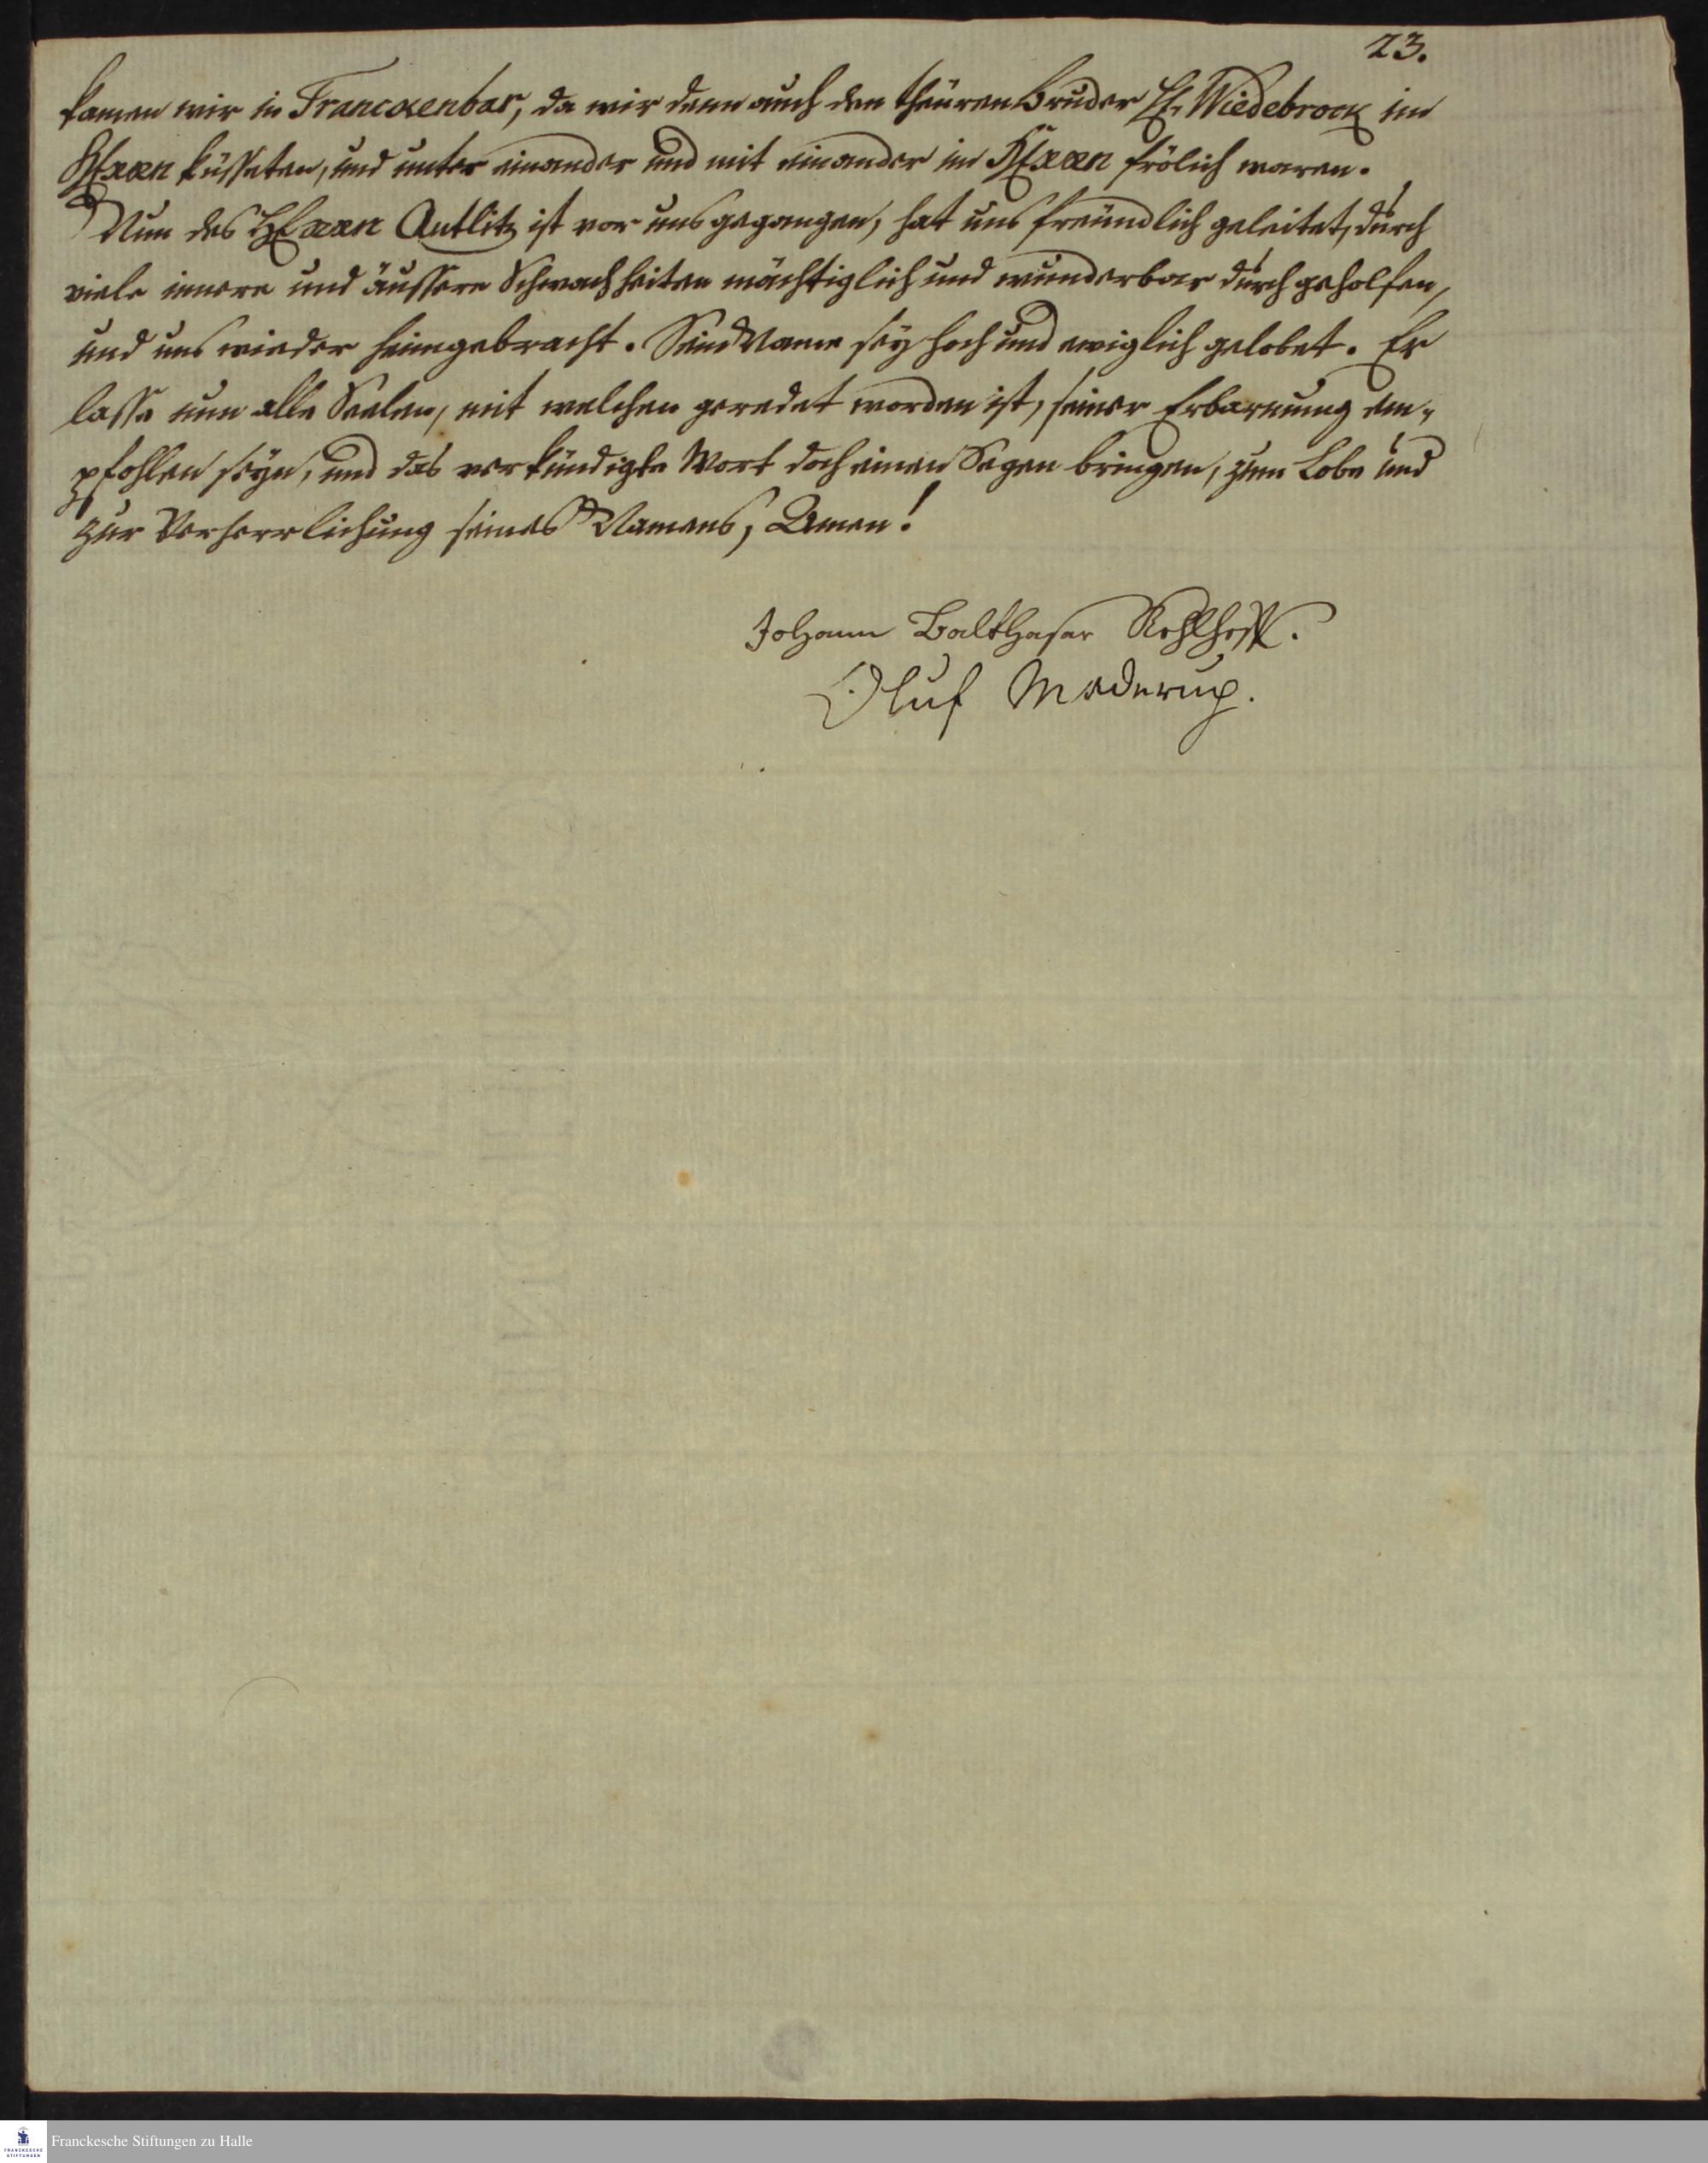 23.
kamen wir in Franckenbar, da wir denn auch den theüren Bruder H. Wiedebrock im
HErrn küsseten, und unter einander und mit einander im HErrn frölich waren.
Nun des HErrn Antlitz ist vor uns gegangen, hat uns freündlich geleitet, durch
viele innere und äussere Schwachheiten mächtiglich und wunderbar durchgeholfen,
und uns wieder heimgebracht. Sein Name sey hoch und ewiglich gelobet. Er
lasse nun alle Seelen, mit welchen geredet worden ist, seiner Erbarmung em-
pfohlen seyn, und das verkündigte Wort doch einen Segen bringen, zum Lobe und
zur Verherrlichung seines Namens, Amen!
Johann Balthasar Kohlhoff.
Oluf Maderup.
Franckesche Stiftungen zu Halle
FRANCKESCHE
STIFTUNGEN